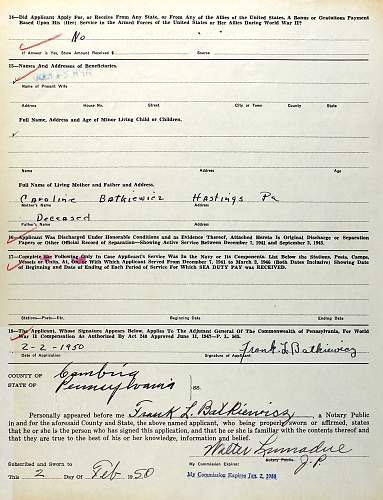 14—Did Applicant Apply For, or Receive From Any State, or From Any of the Allies of the United States, A Bonus or Gratuitous Payment
Based Upon His (Her) Service in the Armed Forces of the United States or Her Allies During World War II?
No
If Answer is Yes, Show Amount Received $ Source
15—Names and Addresses of Beneficiaries.
Name of Present Wife
Address House No. Street City or Town County State
Full Name, Address and Age of Minor Living Child or Children.
Name Address Age
Full Name of Living Mother and Father and Address.
Caroline Batkiewicz Hastings Pa
Mother's Name Address
Deceased
Father's Name Address
16—Applicant Was Discharged Under Honorable Conditions and as Evidence Thereof, Attached Hereto is Original Discharge or Separation
Papers or Other Official Record of Separation—Showing Active Service Between December 7, 1941 and September 2, 1945.
17—Complete the Following Only In Case Applicant's Service Was in the Navy or its Components. List Below the Stations, Posts, Camps,
Vessels or Units, At, On, or With Which Applicant Served From December 7, 1941 to March 2, 1946 (Both Dates Inclusive) Showing Date
of Beginning and Date of Ending of Each Period of Service For Which SEA DUTY PAY was RECEIVED.
Stations—Posts—Etc. Beginning Date Ending Date
18—The Applicant, Whose Signature Appears Below, Applies To The Adjutant General Of The Commonwealth of Pennsylvania, For World
War II Compensation As Authorized By Act 248 Approved June 11, 1947—P. L. 565.
2-2-1950 Frank L Batkiewicz
Date of Application Signature of Applicant
COUNTY OF Cambria
STATE OF Pennsylvania SS:
Personally appeared before me Frank L. Batkiewicz, a Notary Public
in and for the aforesaid County and State, the above named applicant, who being properly sworn or affirmed, states
that he or she is the person who has signed this application, and that he or she is familiar with the contents thereof and
that they are true to the best of his or her knowledge, information and belief.
Walter Lumadue
Notary Public J.P.
Subscribed and Sworn to My Commission Expires:
This 2 Day Of Feb 50 My Commission Expires Jan. 2,